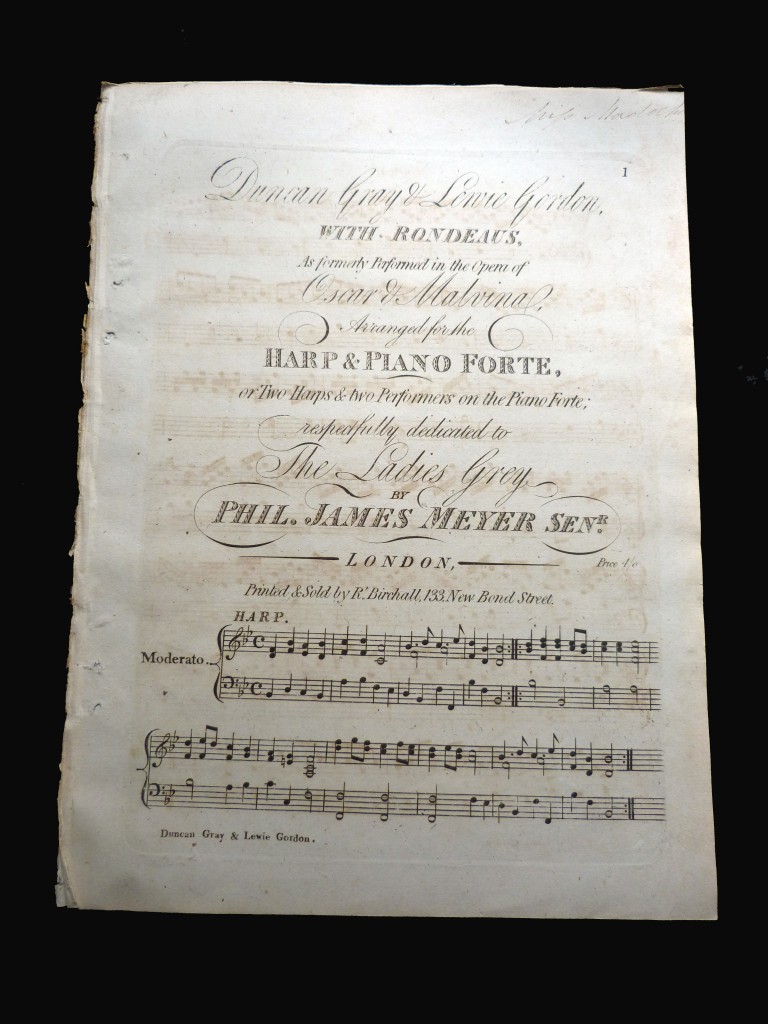 Miss
1
Duncan Gray & Lewie Gordon,
WITH RONDEAUS,
As formerly Performed in the Opera of
Oscar & Malvina,
Arranged for the
HARP & PIANO FORTE,
or Two Harps & two Performers on the Piano Forte;
respectfully dedicated to
The Ladies Grey
BY
PHIL. JAMES MEYER SENR.
LONDON,
Price
Printed & Sold by Rt. Birchall, 133, New Bond Street.
HARP.
Moderato
Duncan Gray & Lewie Gordon.